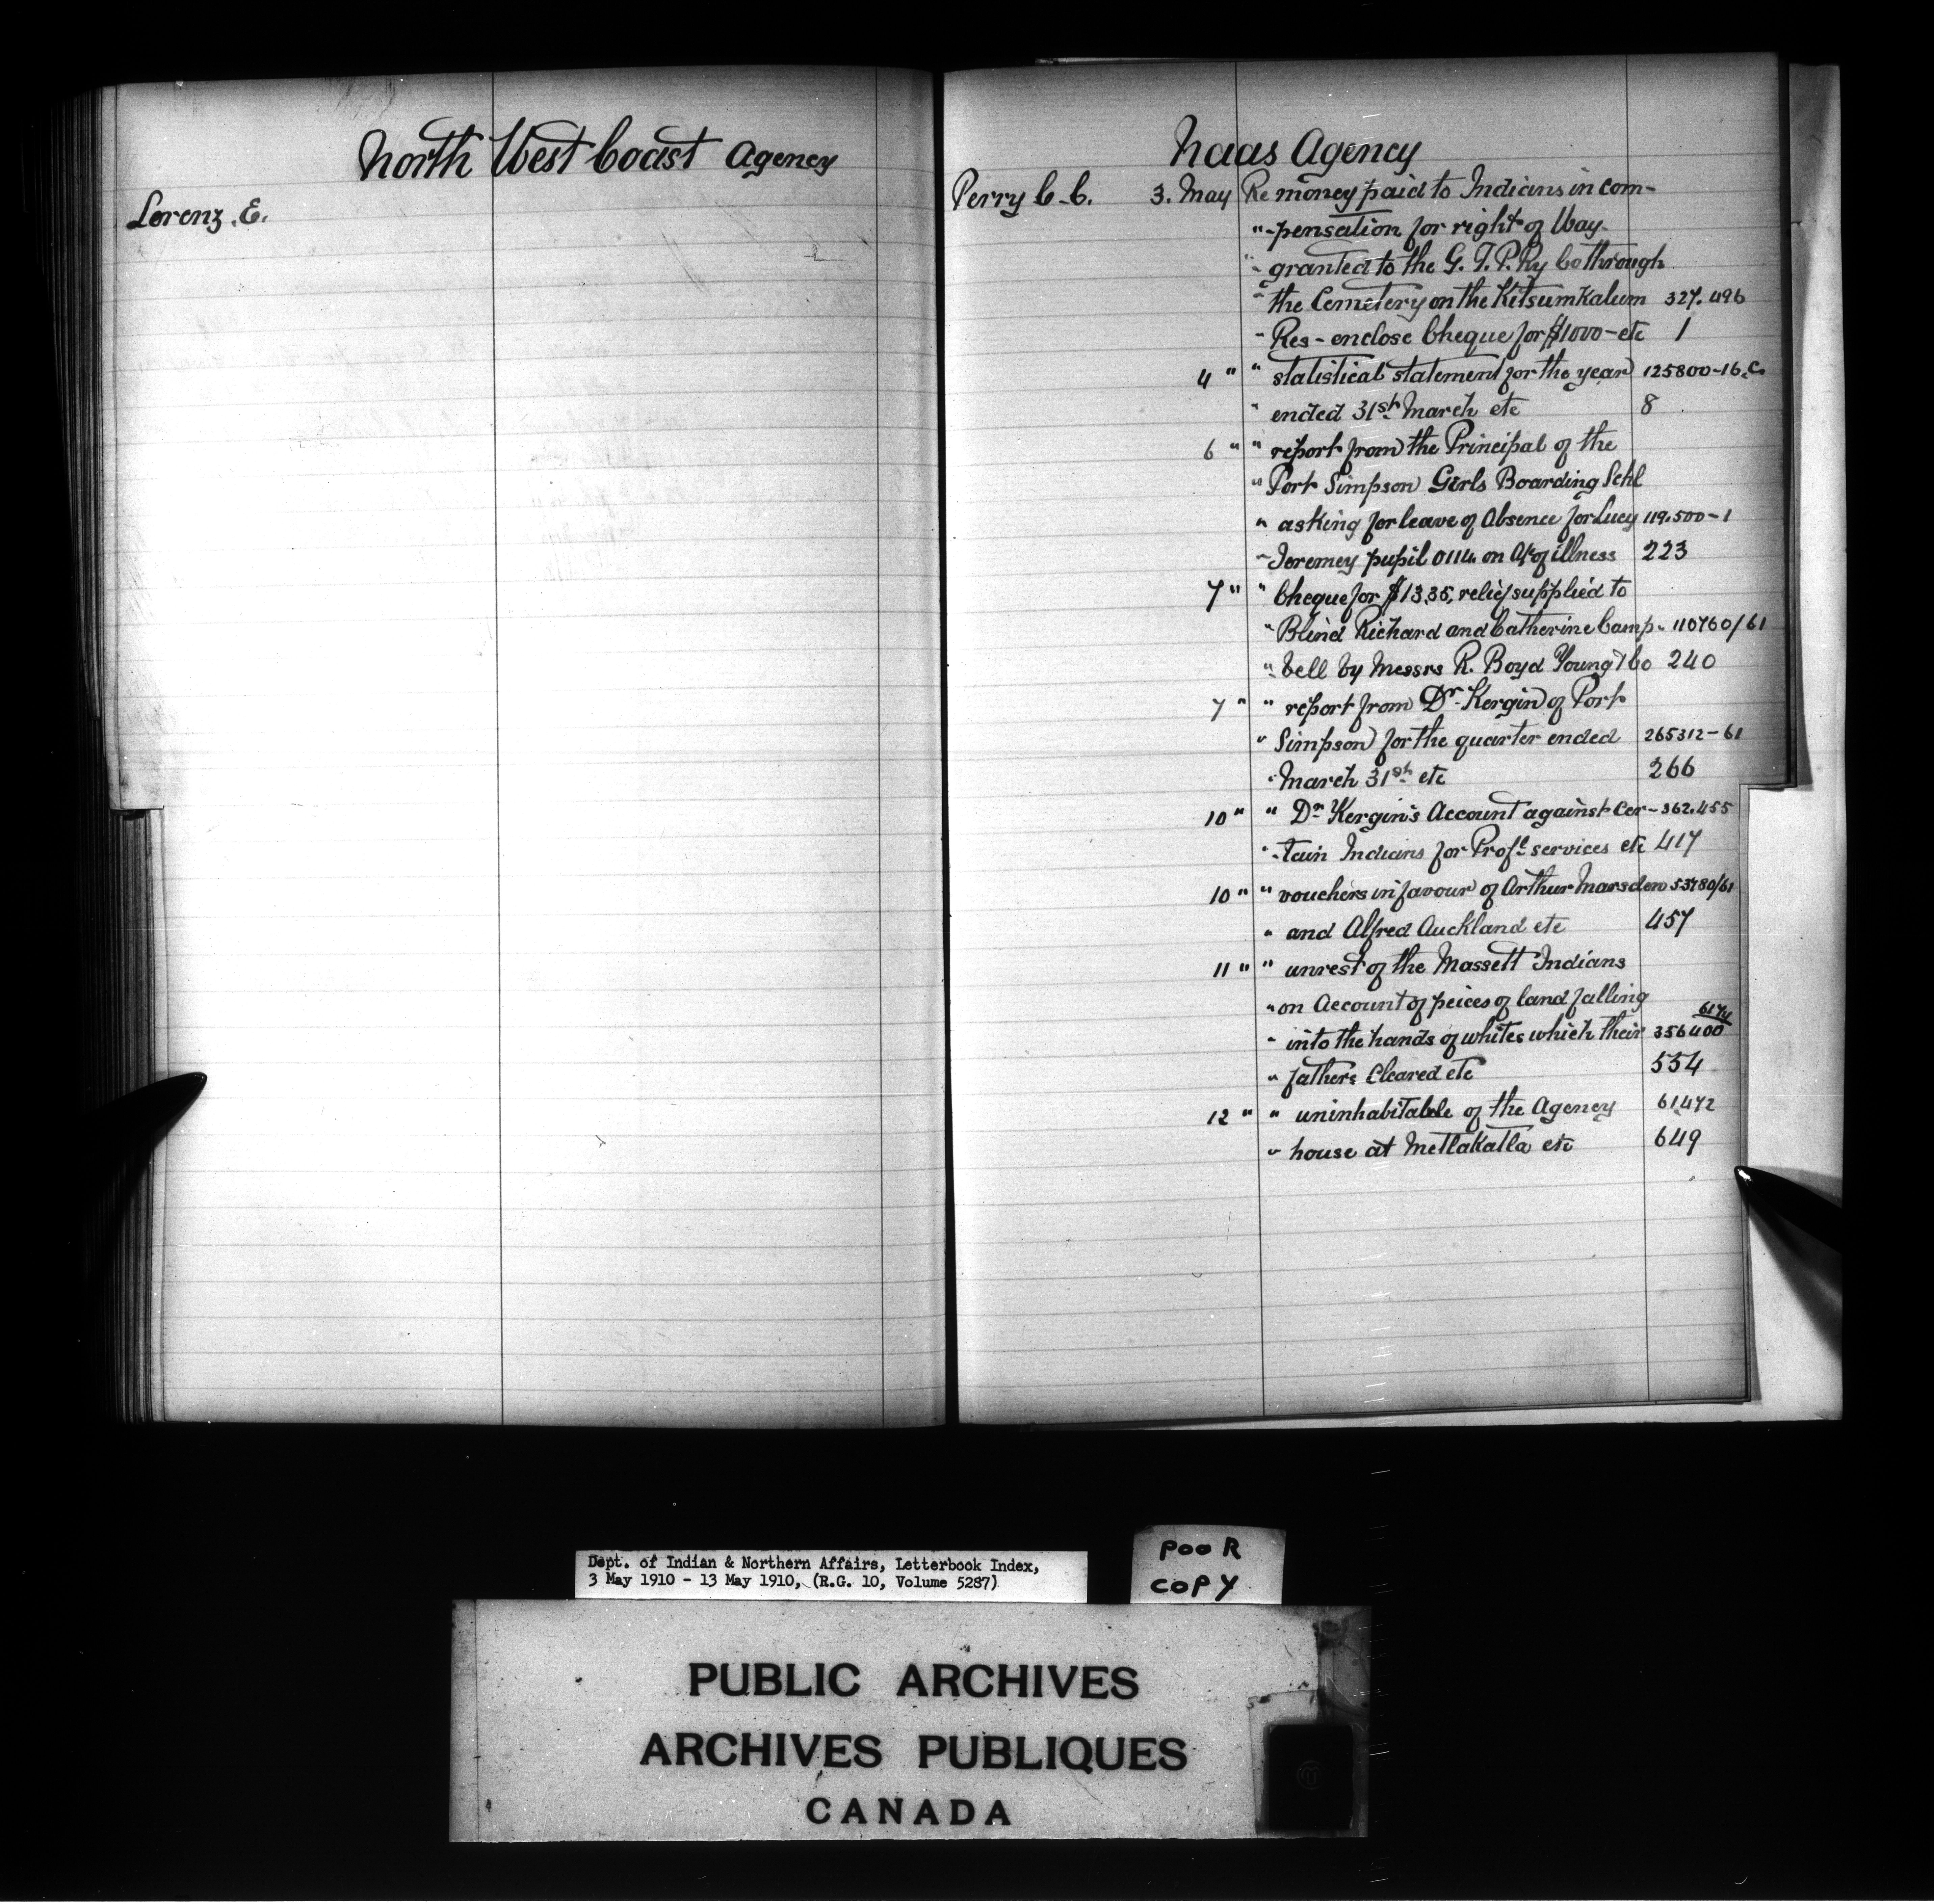 North West Coast Agency
Lorenz. E.
Naas Agency
Perry C. C. 3. May Re money paid to Indians in com-
" -pensation for right of Way
" granted to the G. T. P. Ry Co through
" the Cemetery on the Kitsumkalum 327.496
" Res - enclose Cheque for $1000 - etc 1
4 " " statistical statement for the year 125800-16.C.
" ended 31st March etc 8
6 " " report from the Principal of the
" Port Simpson Girls Boarding Schl
" asking for leave of Absence for Lucy 119.500-1
" Jeremey pupil 0114 on A/c of illness 223
7 " " Cheque for $13.35, relief supplied to
" Blind Richard and Catherine Camp- 110760/61
" bell by Messrs R. Boyd Young & Co 240
7 " " report from Dr. Kergin of Port
" Simpson for the quarter ended 265312-61
" March 31st etc 266
10 " " Dr. Kergin's Account against Cer- 362.455
" -tain Indians for Profl. services etc 417
10 " " vouchers in favour of Arthur Marsden 53780/61
" and Alfred Auckland etc 457
11 " " unrest of the Massett Indians
" on Account of peices of land falling
" into the hands of whites which their 356400
" fathers Cleared etc 554
12 " " uninhabitable of the Agency 61472
" house at Metlakatla etc 649
Dept. of Indian & Northern Affairs, Letterbook Index,
3 May 1910 - 13 May 1910, (R.G. 10, Volume 5287)
POOR
COPY
PUBLIC ARCHIVES
ARCHIVES PUBLIQUES
CANADA